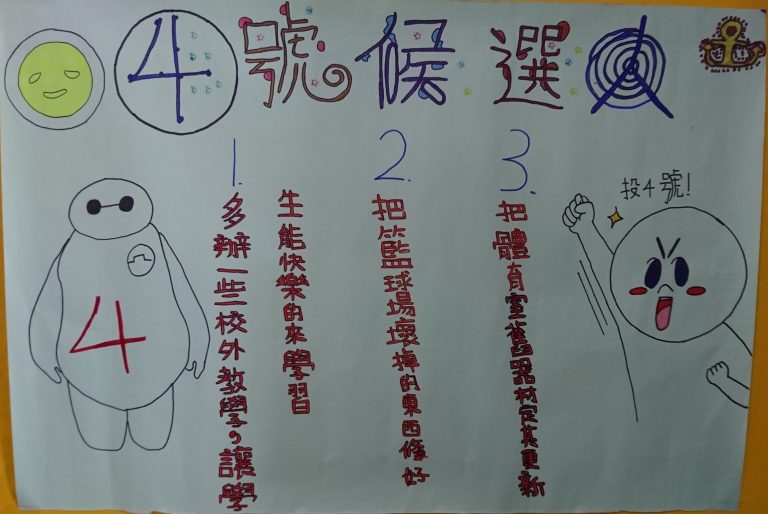 4號候選人
1.
多辦一些校外教學，讓學
生能快樂的來學習
2.
把籃球場壞掉的東西修好
3.
把體育室舊器材定其更新
投4號!
4